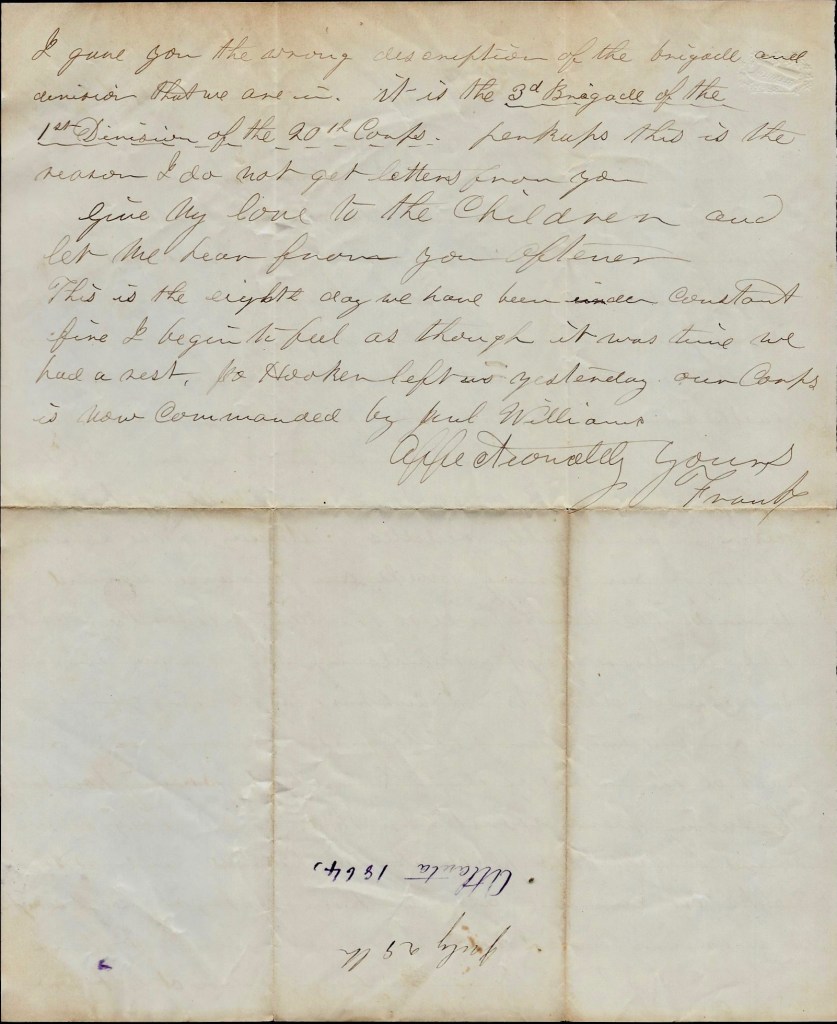 I gave you the wrong description of the brigade and
division that we are in. it is the 3d Brigade of the
1st Division of the 20th Corps. perhaps this is the
reason I do not get letters from you
Give My love to the Children and
let Me hear from you oftener
This is the eighth day we have been under constant
fire I begin to feel as though it was time we
had a rest, Jo Hooker left us yesterday our Corps
is now Commanded by Williams
Affectionately yours
Frank
Atlanta 1864.
July 28th